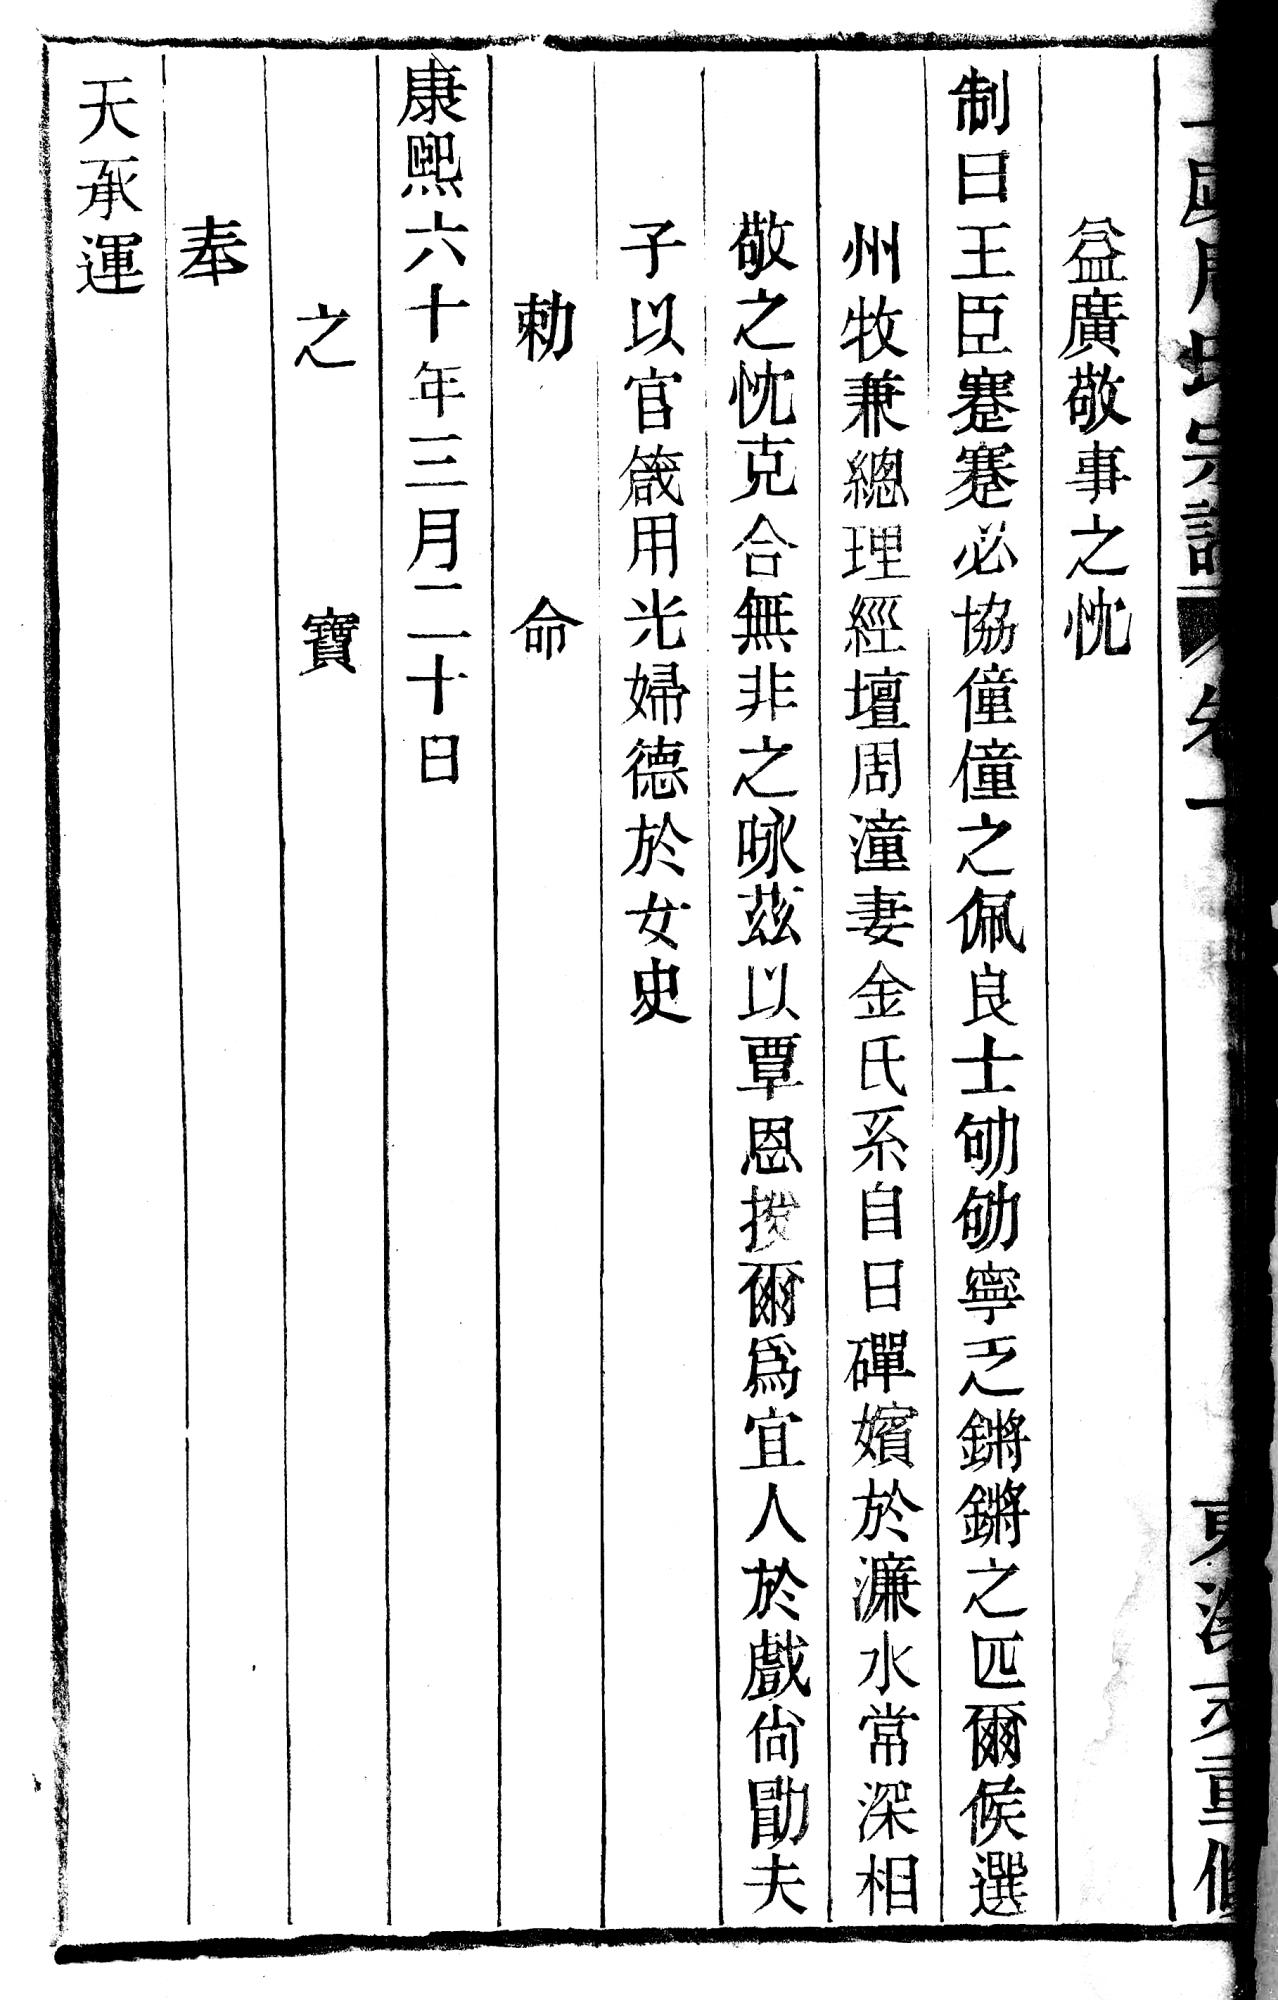 周氏宗譜 卷一 重修
益廣敬事之忱
制曰王臣蹇蹇必協僮僮之佩良士劬劬寧乏鏘鏘之匹爾候選
州牧兼總理經壇周潼妻金氏系自日磾嬪於濂水常深相
敬之忱克合無非之咏茲以覃恩授爾爲宜人於戲尙勖夫
子以官箴用光婦德於女史
勅命
康熙六十年三月二十日
之寶
奉
天承運